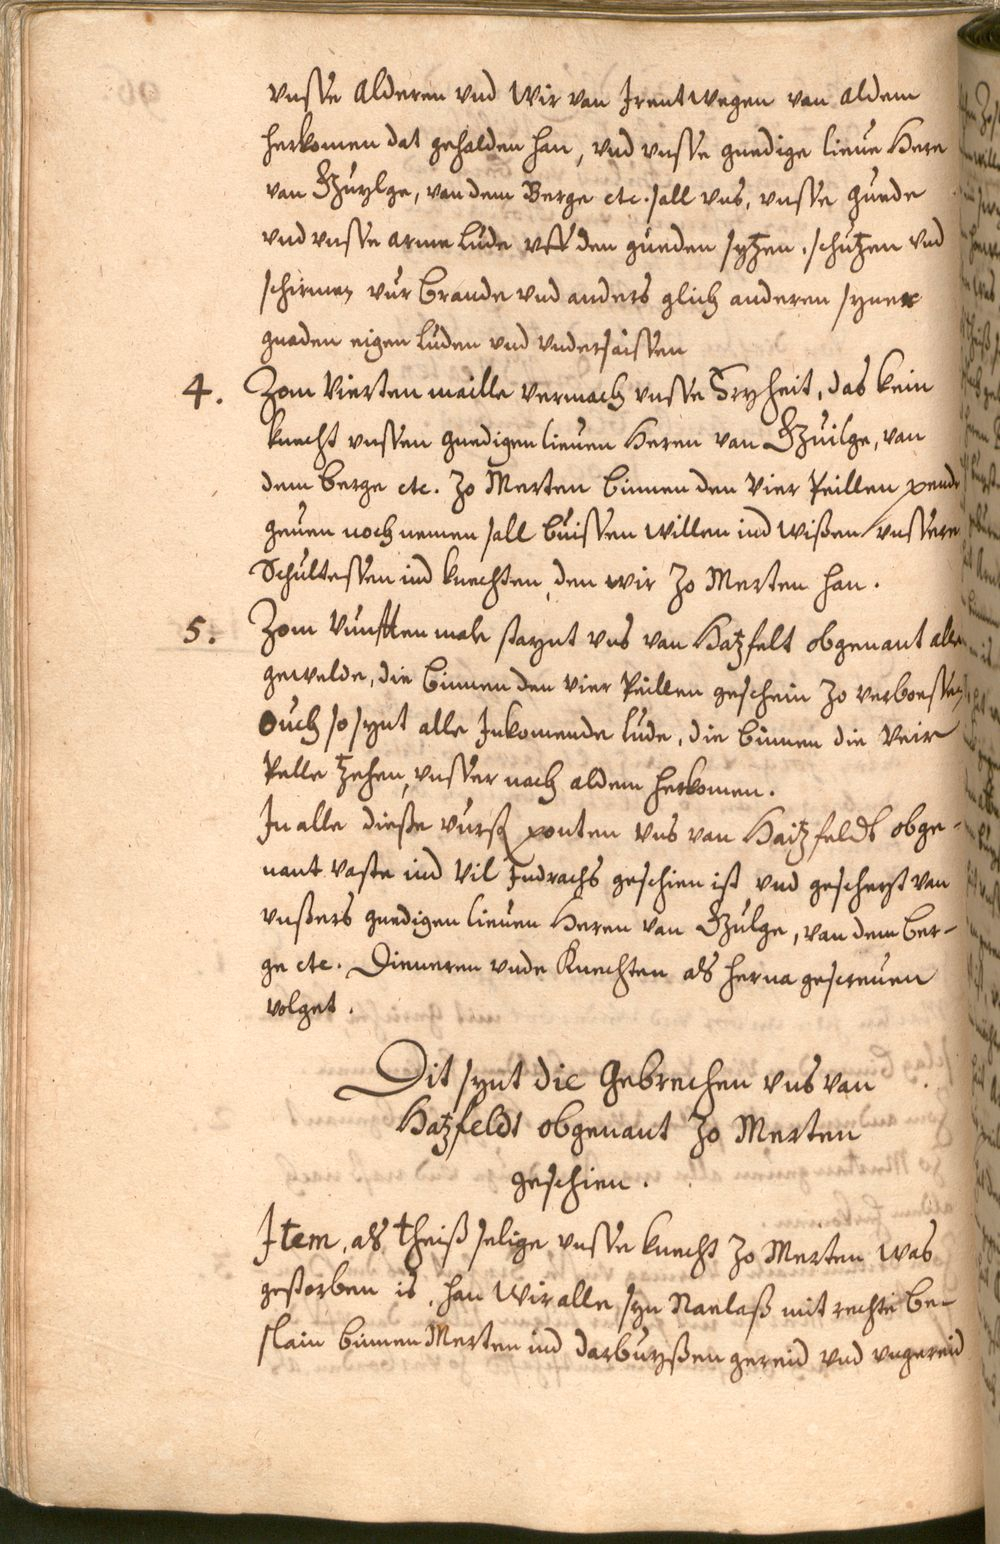 vnsse Alderen vnd wir van Jrentwegen van aldem
herkomen dat gehalden han, vnd vnsse gnedige lieue Here
van Guylge, van dem Berge etc. sall vns, vnsse guede
vnd vnsse arme lude vff den gueden sytzen, schutzen vnd
schirmen vur brande vnd anders glich anderen syner
gnaden eigen luden vnd vndersaissen
4. Zom vierten maille vermach vnsse Fryheit, das kein
knecht vnssen gnedigen lieuen Heren van Guilge, van
dem berge etc. zo Merten binnen den vier Peillen pende
geuen noch nemen sall buissen willen ind wißen vnssere
Schultessen ind knechten, den wir zo Merten han.
5. Zom vunfften male staynt vns van Hatzfelt obgenant alle
gewelde, die binnen den vier Peillen geschein zo verboessen,
Ouch so synt alle Jnkomende lude, die binnen die Veir
Pelle tzehen, vnsser nach aldem herkomen.
Jn alle dieße vurß ponten vns van Haitzfeldt obge-
nant vaste ind vil Jndrachs geschien ist vnd geschehst van
vnßers gnedigen lieuen Heren van Gulge, van dem Ber-
ge etc. Dieneren vnde Knechten als herna gescreuen
volget.
Dit synt die Gebrechen vns van
Hatzfeldt obgenant zo Merten
geschien.
Jtem, als theiß selige vnsse knecht zo Merten was
gestorben is, han wir alle syn Naelaß mit rechte be-
slain binnen Merten ind darbuyßen gereid vnd vngereid